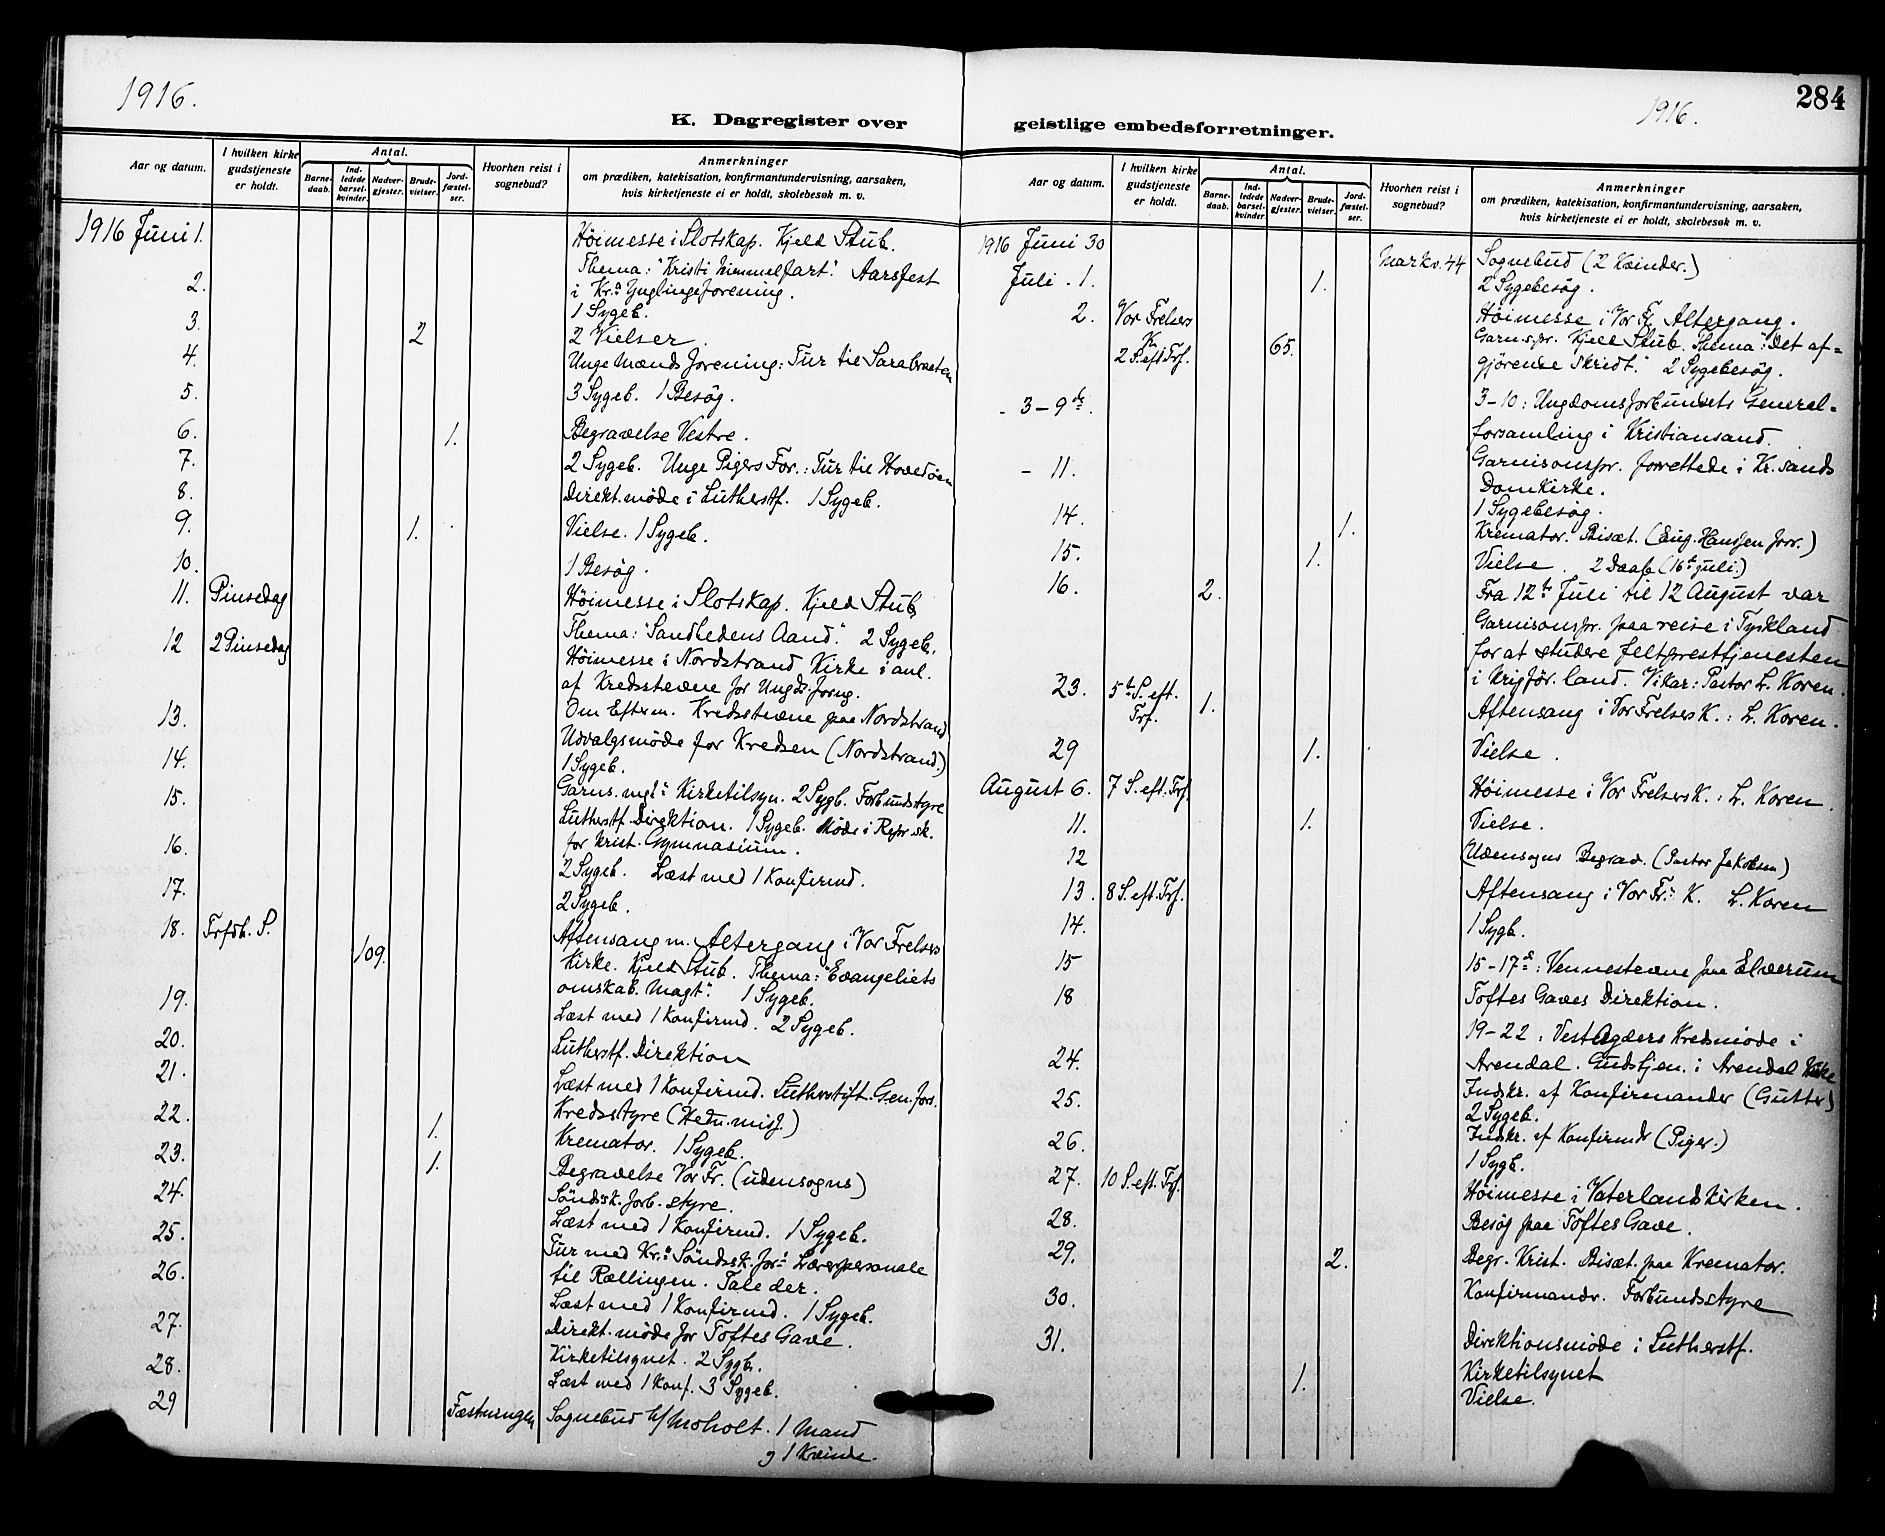 1916.
K. Dagregister over
Aar og datum.
I hvilken kirke gudstjeneste er holdt.
Antal.
Barne-daab.
Ind-ledede barsel-kvinder.
Nadver-gjester.
Brude-vielser.
Jord-fæstel-ser.
Hvorhen reist i sognebud?
Anmerkninger
om prædiken, katekisation, konfirmantundervisning, aarsaken,
hvis kirketjeneste ei er holdt, skolebesøk m. v.
1916 Juni 1. Höimesse i Slotskap. Kjeld Stub.
Thema: "Kristi himmelfart". Aarsfest
2. i Kr.a Ynglingeforening.
1 Sygeb.
3. 2 2 Vielser.
4. Unge Mænds forening: Tur til Sarabraaten
5. 3 Sygeb. 1 Besøg.
6. 1. Begravelse Vestre.
7. 2 Sygeb. Unge Pigers For.: Tur til Hovedöen
8. Direkt. møde i Lutherstf. 1 Sygeb.
9. 1. Vielse. 1 Sygeb.
10. 1 Besøg.
11. Pinsedag Höimesse i Slotskap. Kjeld Stub
Thema: "Sandhedens Aand". 2 Sygeb.
12 2 Pinsedag Höimesse i Nordstrand Kirke i anl.
af Kredsstevne for Ungd. foreng.
13. Om Efterm. Kredsstevne paa Nordstrand
Udvalgsmøde for Kredsen (Nordstrand.)
14. 1 Sygeb.
15. Garns. mgt.s Kirketilsyn. 2 Sygb. Forbundsstyre
Lutherstf. Direktion. 1 Sygeb. Møde i Repr. sk.
16. for Krist. Gymnasium.
2 Sygeb. Læst med 1 Konfirmd.
17. 2 Sygeb.
18. Trfdh. S. 109. Aftensang m. Altergang i Vor Frelsers
Kirke. Kjeld Stub. Thema: "Evangeliets
omskab. Magt". 1 Sygeb.
19. Læst med 1 Konfirmd. 2 Sygeb.
20. Lutherstf. Direktion
21. Læst med 1 Konfirmd. Lutherstift. Gen. fors.
22. Kredsstyre (Hedn. misj.)
1. Kremator. 1 Sygeb.
23. 1. Begravelse Vor Fr. (udensogns)
24. Söndsk. forb. styre.
25. Læst med 1 Konfirmd. 1 Sygeb.
Tur med Kr.a Söndsk. for.s Lærerpersonale
26. til Rællingen. Tale der.
Læst med 1 Konfirmd. 1 Sygeb.
27. Direkt. møde for Toftes Gave.
28. Kirketilsynet. 2 Sygb.
Læst med 1 Konf. 3 Sygeb.
29 Fæstningen Sognebud h/ Moholt. 1 Mand
og 1 Kvinde.
284
1916.
geistlige embedsforretninger.
Aar og datum.
I hvilken kirke gudstjeneste er holdt.
Antal.
Barne-daab.
Ind-ledede barsel-kvinder.
Nadver-gjester.
Brude-vielser.
Jord-fæstel-ser.
Hvorhen reist i sognebud?
Anmerkninger
om prædiken, katekisation, konfirmantundervisning, aarsaken,
hvis kirketjeneste ei er holdt, skolebesøk m. v.
1916 Juni 30 Markv. 44 Sognebud (2 Kvinder.)
Juli . 1. 1. 2 Sygebesøg.
2. Vor Frelsers Höimesse i Vor Fr. Altergang.
K. 65. Garns.pr. Kjeld Stub. Thema: "Det af=
2 S. eft Trf. gjörende Skridt". 2 Sygebesøg.
- 3-9de. 3-10: Ungdomsforbundets General=
forsamling i Kristiansand.
- 11. Garnisonspr. forrettede i Kr. sands
Domkirke.
14. 1 Sygebesøg.
1. Kremator. Bisæt. (Aug. Hansen forr.)
15. 1. Vielse. 2 Daab (16te Juli.)
16. 2. Fra 12te Juli til 12 August var
Garnisonspr. paa reise i Tyskland
for at studere feltpresttjenesten
i krigför. land. Vikar: Pastor L. Koren.
23. 5te S. eft. Trf. 1. Aftensang i Vor Frelsers K.: L. Koren.
29 1. Vielse.
August 6. 7 S. eft. Trf. Höimesse i Vor Frelsers K.: L. Koren.
11. 1. Vielse.
12 Udensogns Begrav. (Pastor Jakobsen)
13. 8 S. eft. Trf. Aftensang i Vor Fr.s K. L. Koren
14. 1 Sygb.
15 15-17de: Vennestevne paa Elverum
18 Toftes Gaves Direktion.
19-22: Vest Agders Kredsmøde i
24. Arendal. Gudstjen. i Arendal Kirke
25. Indskr. af Konfirmander (Gutter)
2 Sygeb.
26. Indskr. af Konfirmdr (Piger.)
1 Sygb.
27. 10 S. eft. Trf. Höimesse i Vaterlandskirken.
28. Besøg paa Toftes Gave.
29. 2. Begr. Krist. Bisæt. paa Kremator.
30. Konfirmandr. Forbundsstyre
31. Direktionsmøde i Lutherstf.
Kirketilsynet
1. Vielse.